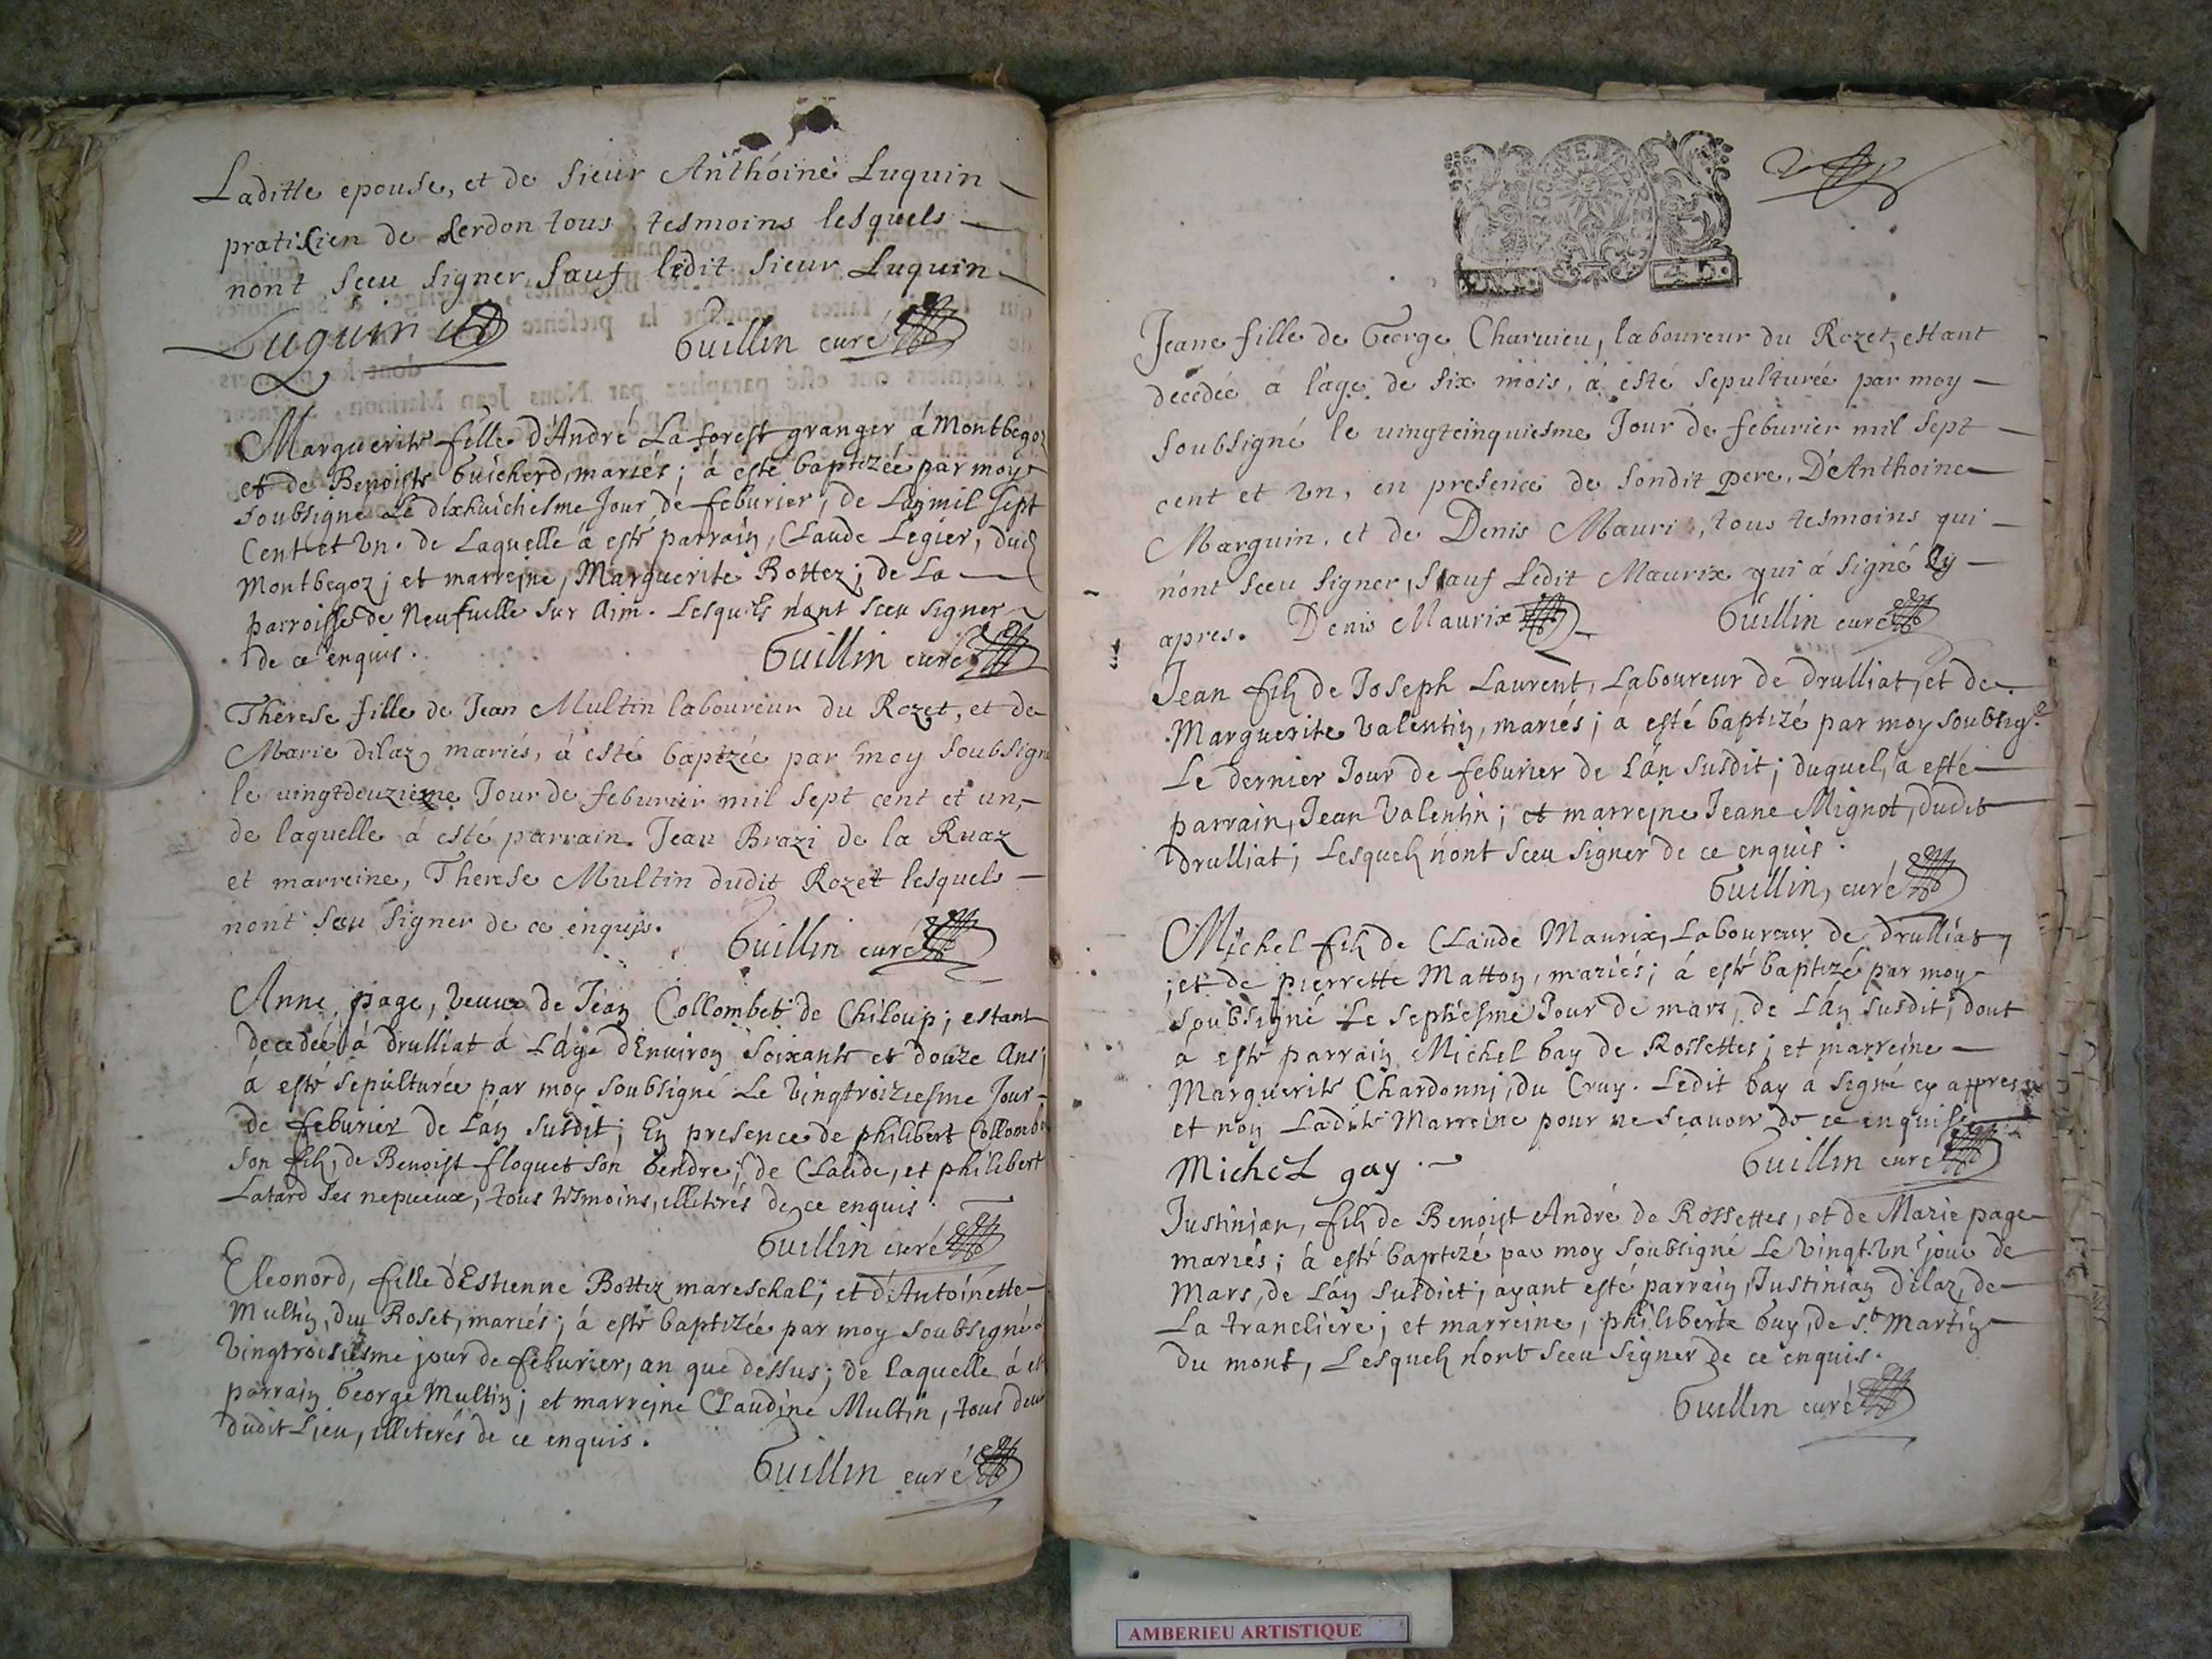 Laditte epouse, et de sieur Anthoine Luquin
praticien de Cerdon tous tesmoins lesquels
nont sceu signer sauf ledit sieur Luquin
Luquin
Guillin curé
Marguerite fille d'André Laforest granger á Montbegoz
et de Benoiste Guicherd, mariés; á esté baptizée par moy
soubsigné Le dixhuictiesme Jour de feburier, de Lan mil sept
Cent et Vn. de Laquelle á esté parrain, Claude Legier, dud
Montbegoz; et marreine, Marguerite Rottez; de La
parroisse de Neufuille sur Aim. Lesquels nont sceu signer
de ce enquis.
Guillin curé
Therese fille de Jean Multin laboureur du Rozet, et de
Marie dilaz mariés, á esté baptzée par moy soubsigné
le uingtdeuzieme Jour de feburier mil sept cent et un,
de laquelle á esté parrain Jean Brazi de la Ruaz
et marreine, Therese Multin dudit Rozet lesquels
nont sceu signer de ce enquis.
Guillin curé
Anne page, Veuue de Jean Collombet de Chiloup; estant
decedée á drulliat á Láge dEnuiron Soixante et douze Ans;
á esté sepulturée par moy soubsigné Le Vingtroiziesme Jour
de feburier de Lan susdit; En presence de philibert Collombet
son fils, de Benoist floquet son Gendre; de Claude, et philibert
Latard ses nepueux, tous tesmoins, illiterés de ce enquis.
Guillin curé
Eleonord, fille d'Estienne Bottez mareschal; et d'Antoinette
Multin, du Roset, mariés; á esté baptizée par moy soubsigné
Vingtroisiesme jour de feburier, an que dessus; de Laquelle á esté
parrain George Multin; et marreine Claudine Multin, tous deux
dudit Lieu, illiterés de ce enquis.
Guillin curé
Jeane fille de George Charuieu, laboureur du Rozet, estant
decedée á l'age de six mois, á esté sepulturée par moy
soubsigné le uingtcinquiesme Jour de feburier mil sept
cent et vn, en presence de sondit pere, D'Anthoine
Marguin, et de Denis Maurix, tous tesmoins qui
nont sceu signer, sauf Ledit Maurix qui á signé cy
apres. Denis Maurix
Guillin curé
Jean fils de Joseph Laurent, Laboureur de drulliat, et de
Marguerite Valentin, mariés; á esté baptizé par moy soubsigé
Le dernier Jour de feburier de Lán susdit; duquel, á esté
parrain, Jean Valentin; et marreine Jeane Mignot, dudit
drulliat; Lesquels nont sceu signer de ce enquis.
Guillin, curé
Michel fils de Claude Maurix, Laboureur de drulliat,
; et de pierrette Matton, mariés; á esté baptizé par moy
soubsigné Le septiesme Jour de mars, de Lán susdit; dont
á esté parrain Michel Gay de Rossettes; et marreine
Marguerite Chardonni, du Cruy. Ledit Gay á signé cy appres
et non Ladite Marreine pour ne sçauoir de ce enquise
Michel gay.
Guillin curé
Justinian, fils de Benoist André de Rossettes, et de Marie page
mariés; á esté baptizé par moy soubsigné Le vingt-Vn jour de
Mars, de Lán susdict; ayant esté parrain, Justinian dilaz, de
La trancliere; et marreine, philiberte Guy, de st Martin
du mont, Lesquels nont sceu signer de ce enquis.
Guillin curé
AMBERIEU ARTISTIQUE